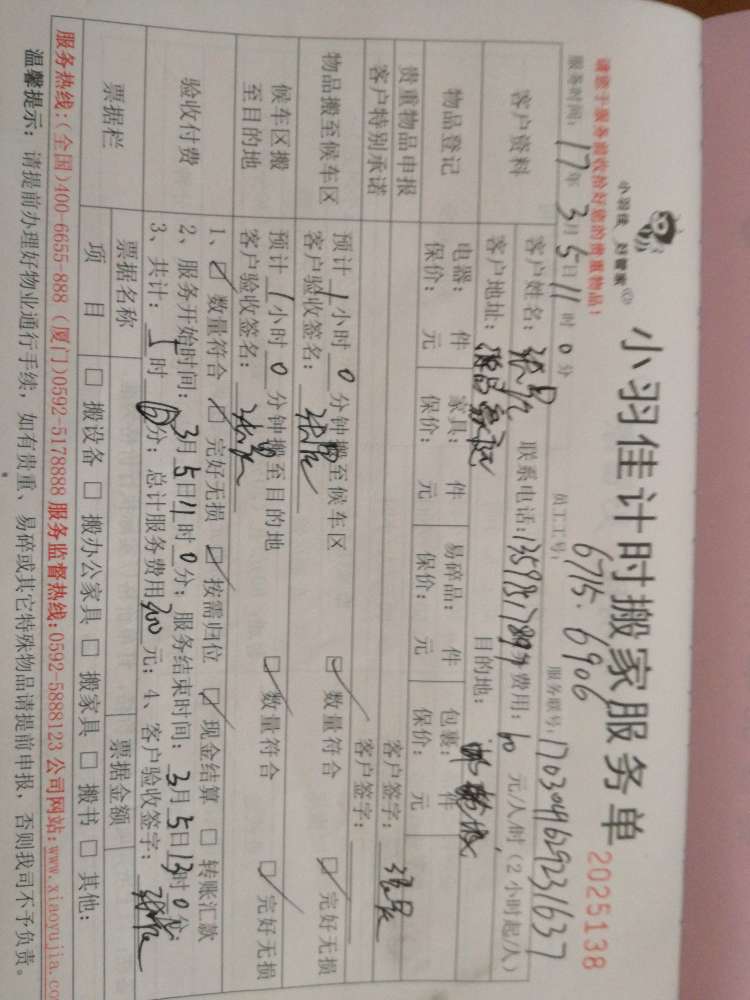 小羽佳 好管家
小羽佳计时搬家服务单
2025138
请您于服务前收拾好您的贵重物品！
员工工号：6715.6906
服务时间：17年3月5日11时0分
客户资料
客户姓名： 联系电话： 费用：60元/人/时（2小时起/人）
客户地址： 目的地：
物品登记
电器： 件 家具： 件 易碎品： 件 包裹： 件
保价： 元 保价： 元 保价： 元 保价： 元
贵重物品申报
客户特别承诺
客户签字：
客户签字：
物品搬至候车区
预计1小时0分钟搬至候车区 ☑数量符合 ☑完好无损
客户验收签名：
候车区搬至目的地
预计1小时0分钟搬至目的地 ☑数量符合 ☑完好无损
客户验收签名：
验收付费
1、☑数量符合 ☑完好无损 ☑按需归位 ☑现金结算 □转账汇款
2、服务开始时间：3月5日11时0分；服务结束时间：3月5日13时0分；
3、共计： 时 分；总计服务费用300元；4、客户验收签字：
票据栏
票据名称 票据金额
项目 □搬设备 □搬办公家具 □搬家具 □搬书 □其他：
服务热线：（全国）400-6655-888（厦门）0592-5178888 服务监督热线：0592-5888123 公司网站：www.xiaoyujia.co
温馨提示：请提前办理好物业通行手续，如有贵重、易碎或其它特殊物品请提前申报，否则我司不予负责。